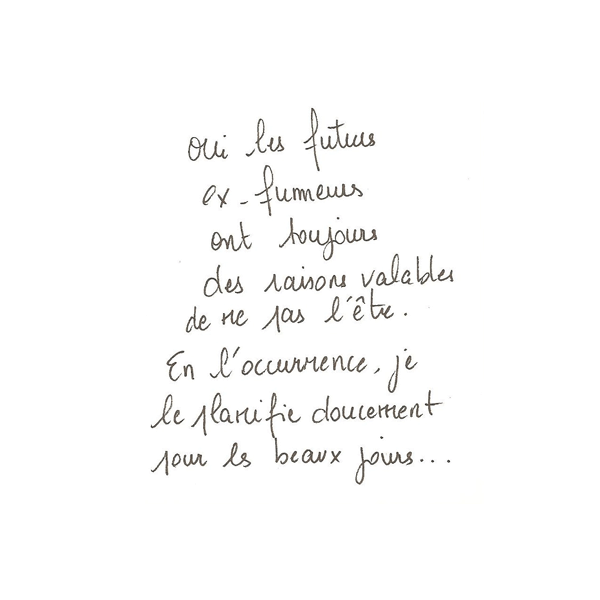 oui les futurs
ex-fumeurs
ont toujours
des raisons valables
de ne pas l'être.
En l'occurrence, je
le planifie doucement
pour les beaux jours...